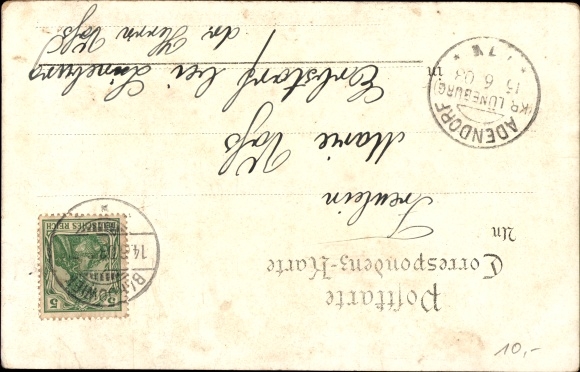 Postkarte
Correspondenz-Karte
An
Fräulein
Marie Voß
in
Erbstorf bei Lüneburg
dr Herrn Voß
5
DEUTSCHES REICH
14.6.03
ADENDORF
(KR. LÜNEBURG)
15.6.03
10,-